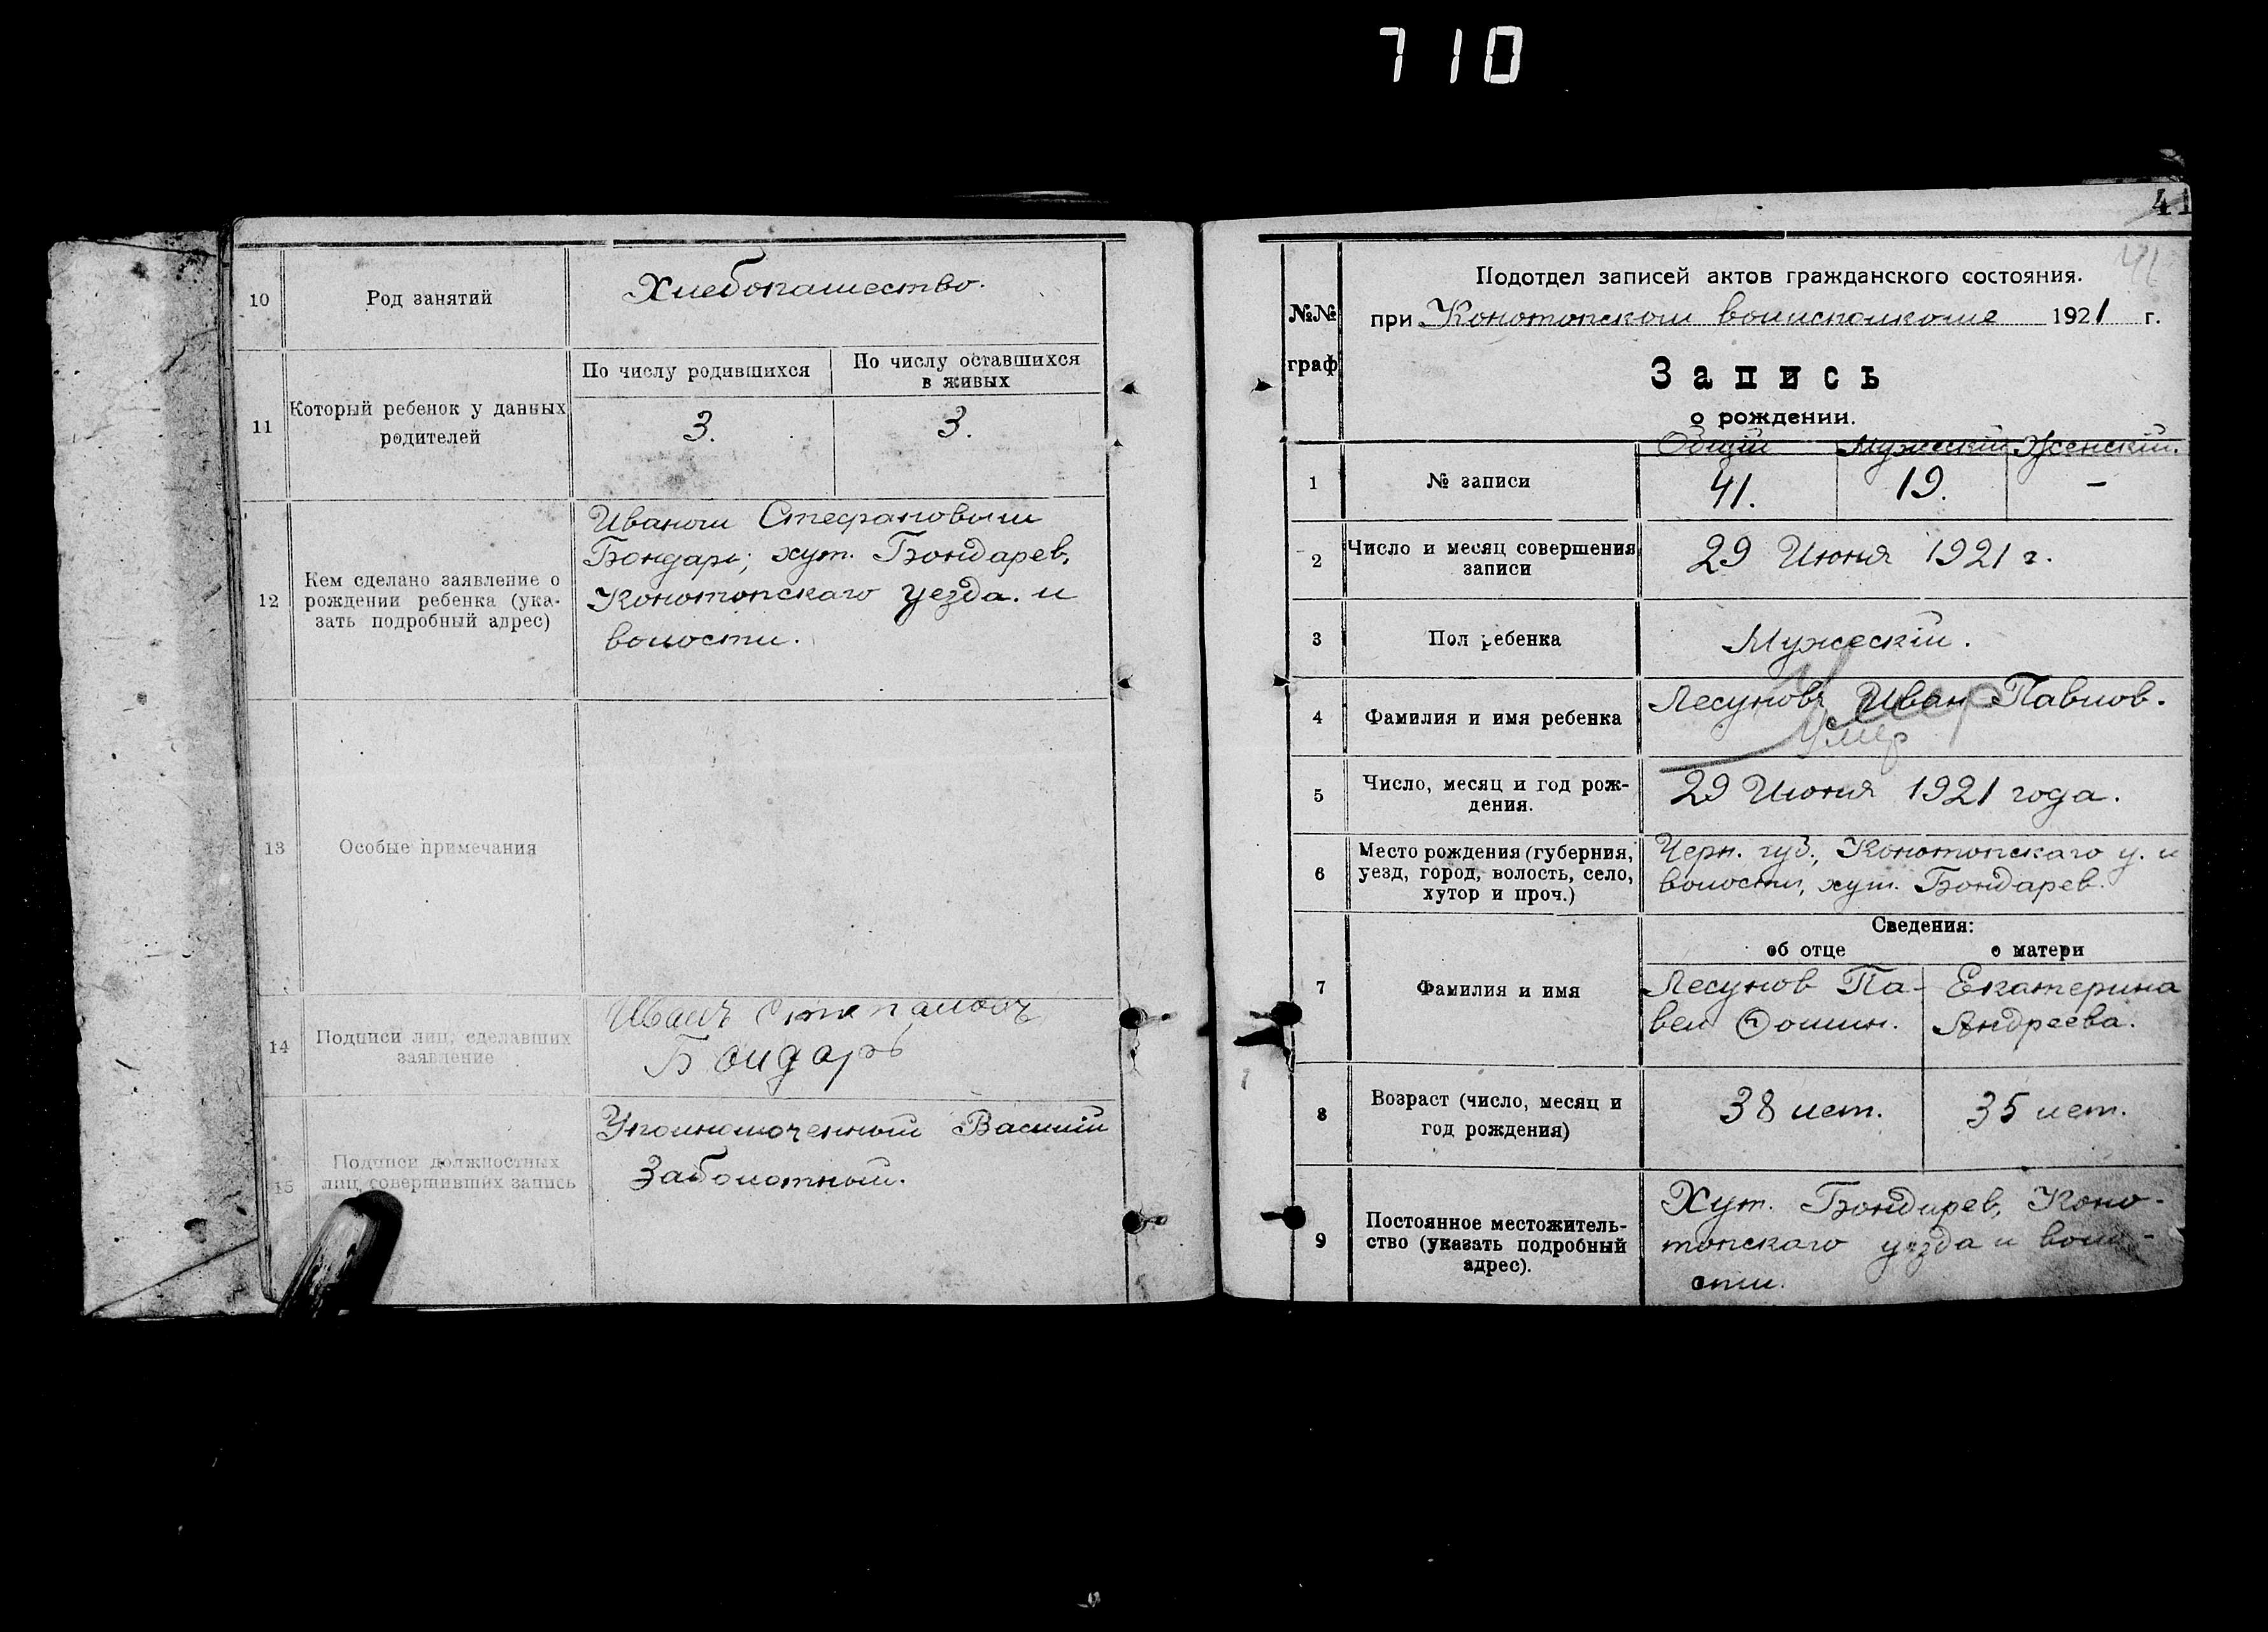 710
10
Род занятий
Хлебопашество.
11
Который ребенок у данных
родителей
По числу родившихся
По числу оставшихся
в живых
3.
3.
12
Кем сделано заявление о
рождении ребенка (ука-
зать подробный адрес)
Иваном Стефановым
Бондарь; хут. Бондарев,
Конотопскаго уезда. и
волости.
13
Особые примечания
14
Подписи лиц, сделавших
заявление
Иванъ Степановъ
Бондарь
15
Подписи должностных
лиц совершивших запись
Уполномоченный Василій
Заболотный.
41
41
№№
граф
Подотдел записей актов гражданского состояния.
при Конотопском волисполкоме 1921 г.
Запись
о рождении.
Общій Мужескій Женскій.
1
№ записи
41. 19. –
2
Число и месяц совершения
записи
29 Июня 1921 г.
3
Пол ребенка
Мужескій.
4
Фамилия и имя ребенка
Лесуновъ Иван Павлов.
Умер
Умер
5
Число, месяц и год рож-
дения.
29 Июня 1921 года.
6
Место рождения (губерния,
уезд, город, волость, село,
хутор и проч.)
Черн. губ., Конотопскаго у. и
волости, хут. Бондарев.
Сведения:
об отце о матери
7
Фамилия и имя
Лесунов Па-
вел Ѳомин.
Екатерина
Андреева.
8
Возраст (число, месяц и
год рождения)
38 лет. 35 лет.
9
Постоянное местожитель-
ство (указать подробный
адрес).
Хут. Бондарев, Коно-
топскаго уезда и воло-
сти.